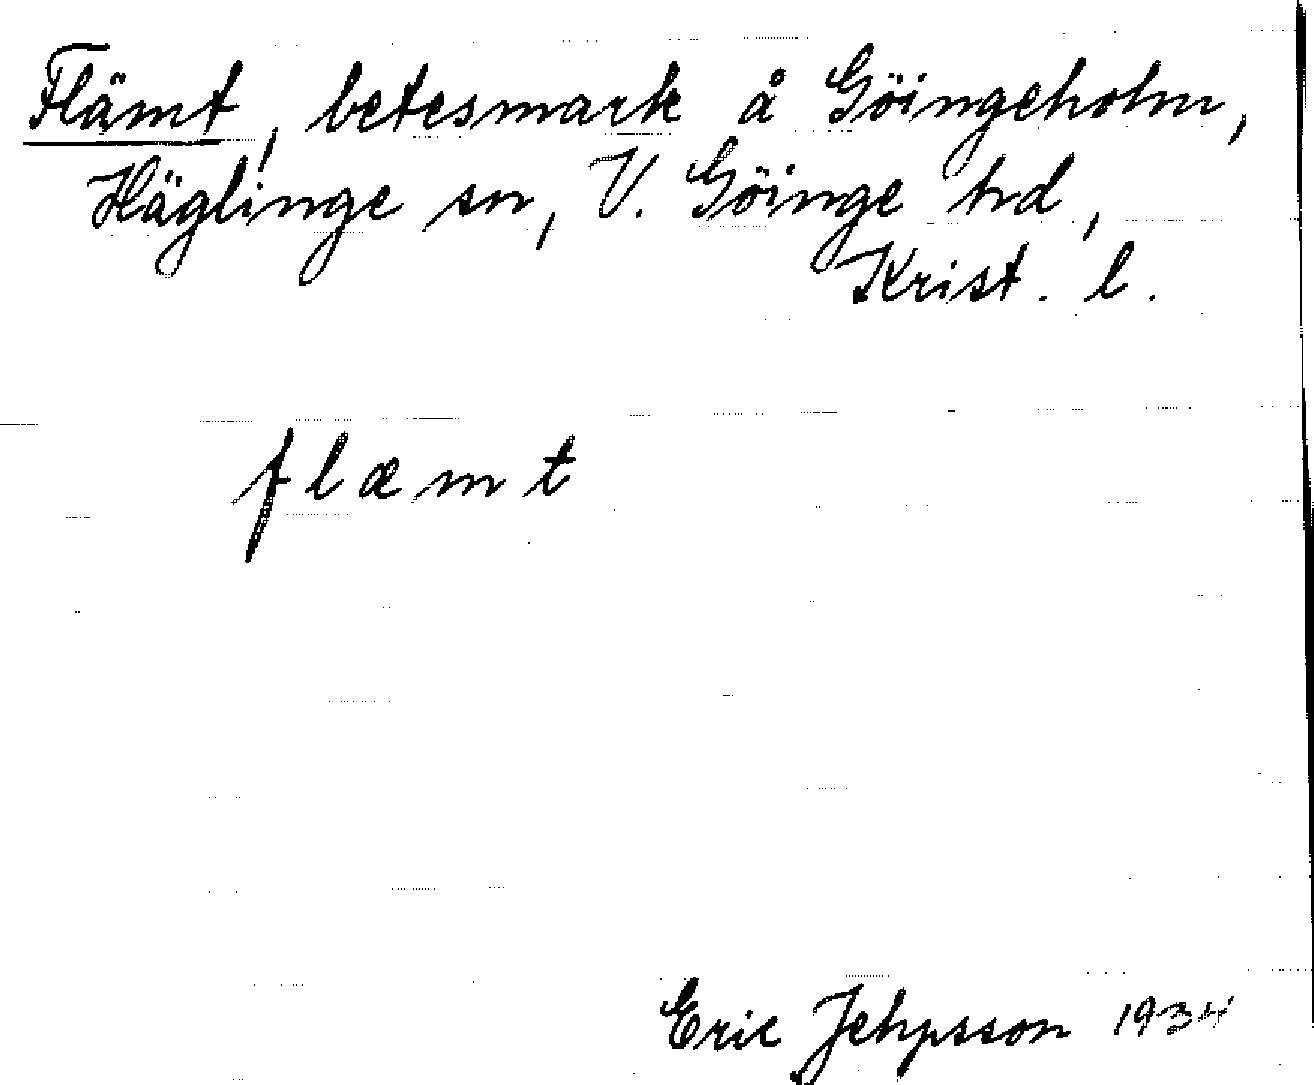 Flämt, betesmark å Göingeholm,
Häglinge sn, V. Göinge hd,
Krist. l.
flæmt
Eric Jehpsson 1934